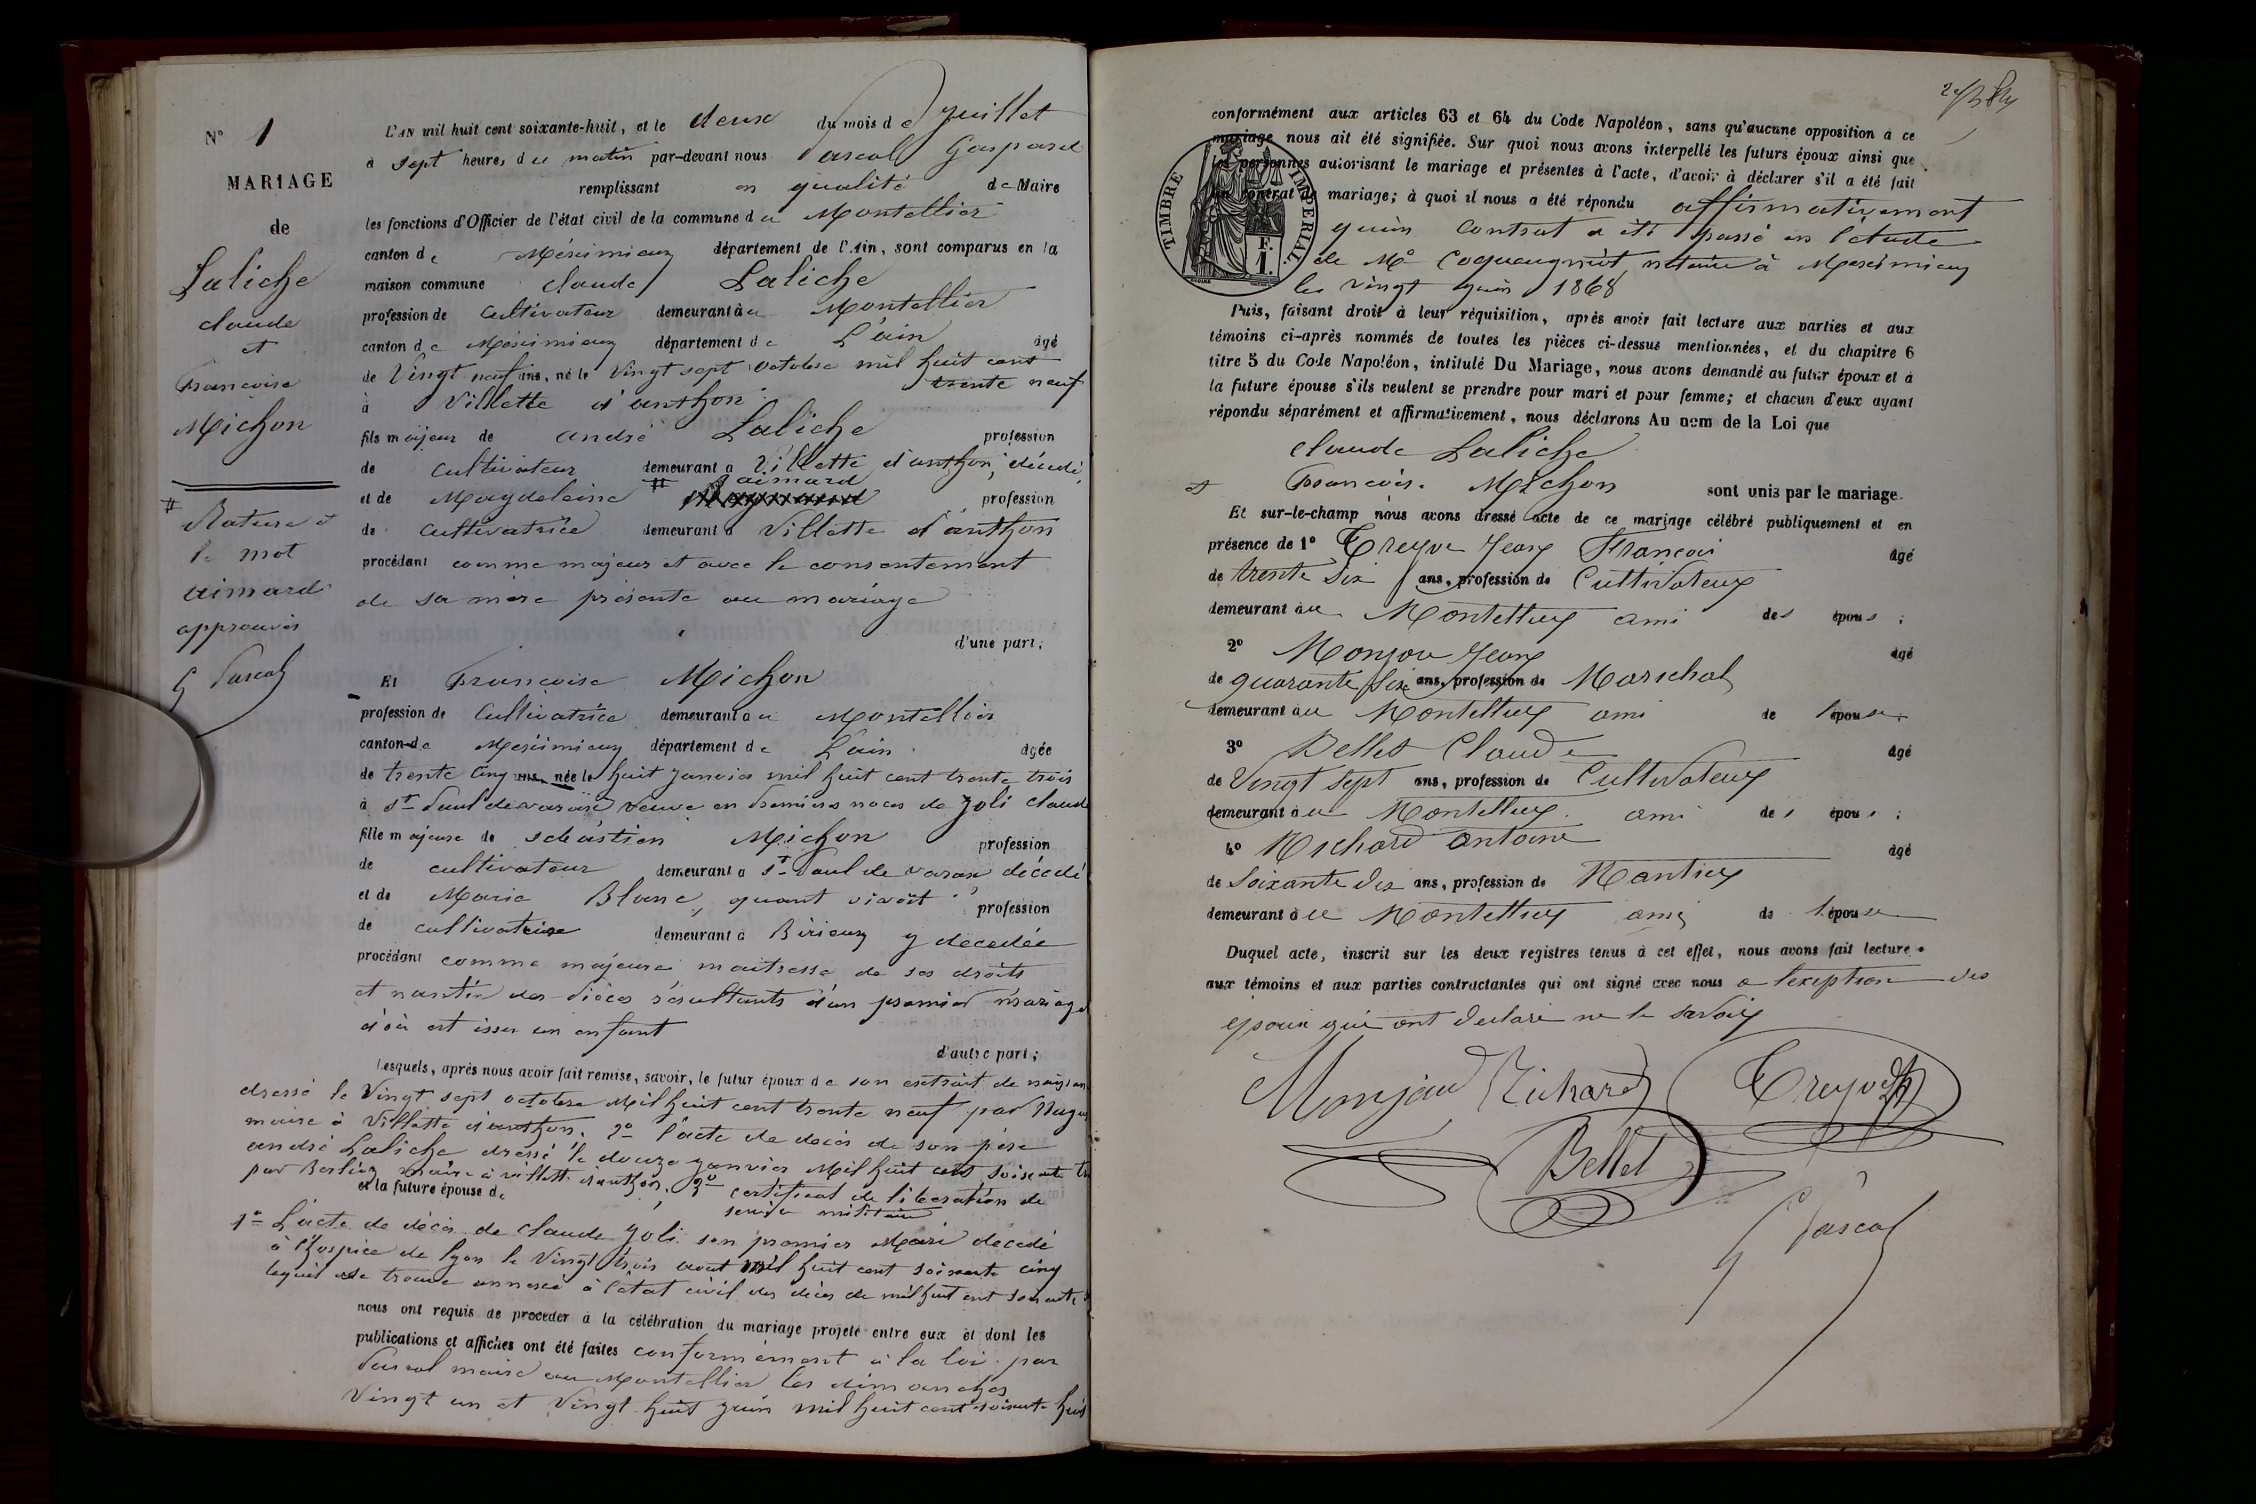 N° 1
MARIAGE
de
Laliche
claude
et
francoise
Michon
# Rature et
le mot
aimard
approuvés
G Pascal
L'AN mil huit cent soixante-huit, et le deux du mois de juillet
à sept heures du matin par-devant nous Pascal Gaspard
remplissant en qualité de Maire
les fonctions d'Officier de l'état civil de la commune du Montellier
canton de Méximieux département de l'Ain, sont comparus en la
maison commune claude Laliche
profession de cultivateur demeurant à au Montellier
canton de Méximieux département de L'ain âgé
de Vingt neuf ans, né le Vingt sept octobre mil huit cent
trente neuf
à Villette d'anthon
fils majeur de andré Laliche profession
de cultivateur demeurant à Villette d'anthon, décédé,
et de Magdeleine # aimard profession
de cultivatrice demeurant à Villette d'anthon
procédant comme majeur et avec le consentement
de sa mère présente au mariage
d'une part;
Et françoise Michon
profession de Cultivatrice demeurant à au Montellier
canton de Meximieux département de L'ain âgée
de trente cinq ans, née le huit janvier mil huit cent trente trois
à St Paul de varax veuve en premiers noces de Joli claude
fille majeure de sebastien Michon profession
de cultivateur demeurant à St Paul de varax décédé
et de Marie Blanc, quant vivait profession
de cultivatrice demeurant à Birieux y decedée
procédant comme majeure maitresse de ses droits
et nantie des pièces résultants d'un premier mariage
d'où est issu un enfant
d'autre part;
Lesquels, après nous avoir fait remise, savoir, le futur époux de son extrait de
dressé le Vingt sept octobre Mil huit cent trente neuf par
maire à Villette d'anthon. 2° l'acte de décès de son père
andré Laliche dressé le douze janvier Mil huit cent soixante
par Berlioz maire à villette d'anthon, 3° certificat de libération de
service militaire
et la future épouse de
1° L'acte de décès de claude Joli son premier Mari décédé
à l'hospice de lyon le Vingt trois aout mil huit cent soixante cinq
lequel se trouve annexée à l'état civil des décès de mil huit cent soixante
nous ont requis de procéder à la célébration du mariage projeté entre eux et dont les
publications et affiches ont été faites conformément à la loi par
Pascal maire au Montellier les dimanches
Vingt un et Vingt huit juin mil huit cent soixante huit
conformément aux articles 63 et 64 du Code Napoléon, sans qu'aucune opposition à ce
mariage nous ait été signifiée. Sur quoi nous avons interpellé les futurs époux ainsi que
les personnes autorisant le mariage et présentes à l'acte, d'avoir à déclarer s'il a été fait
un contrat de mariage; à quoi il nous a été répondu affirmativement
TIMBRE IMPERIAL
F.
1.
qu'un contrat a été passé en l'etude
de Me Coqueugniot notaire à Meximieux
le vingt juin 1868
Puis, faisant droit à leur réquisition, après avoir fait lecture aux parties et aux
témoins ci-après nommés de toutes les pièces ci-dessus mentionnées, et du chapitre 6
titre 5 du Code Napoléon, intitulé Du Mariage, nous avons demandé au futur époux et à
la future épouse s'ils veulent se prendre pour mari et pour femme; et chacun d'eux ayant
répondu séparément et affirmativement, nous déclarons Au nom de la Loi que
claude Laliche
et francoise Michon sont unis par le mariage.
Et sur-le-champ nous avons dressé acte de ce mariage célébré publiquement et en
présence de 1° Treyve Jean François âgé
de trente six ans, profession de Cultivateur
demeurant à au Montellier ami des épous;
2° Monjou Jean âgé
de quarante six ans, profession de Marechal
demeurant à au Montellier ami de l'épouse;
3° Bellet Claude âgé
de Vingt sept ans, profession de Cultivateur
demeurant à au Montellier ami des épous;
4° Richard antoine âgé
de Soixante dix ans, profession de Rantier
demeurant à au Montellier ami de l'épouse
Duquel acte, inscrit sur les deux registres tenus à cet effet, nous avons fait lecture
aux témoins et aux parties contractantes qui ont signé avec nous a l'exeption des
epoux qui ont declaré ne le savoir
Monjou Richard Treyve
Bellet
G Pascal